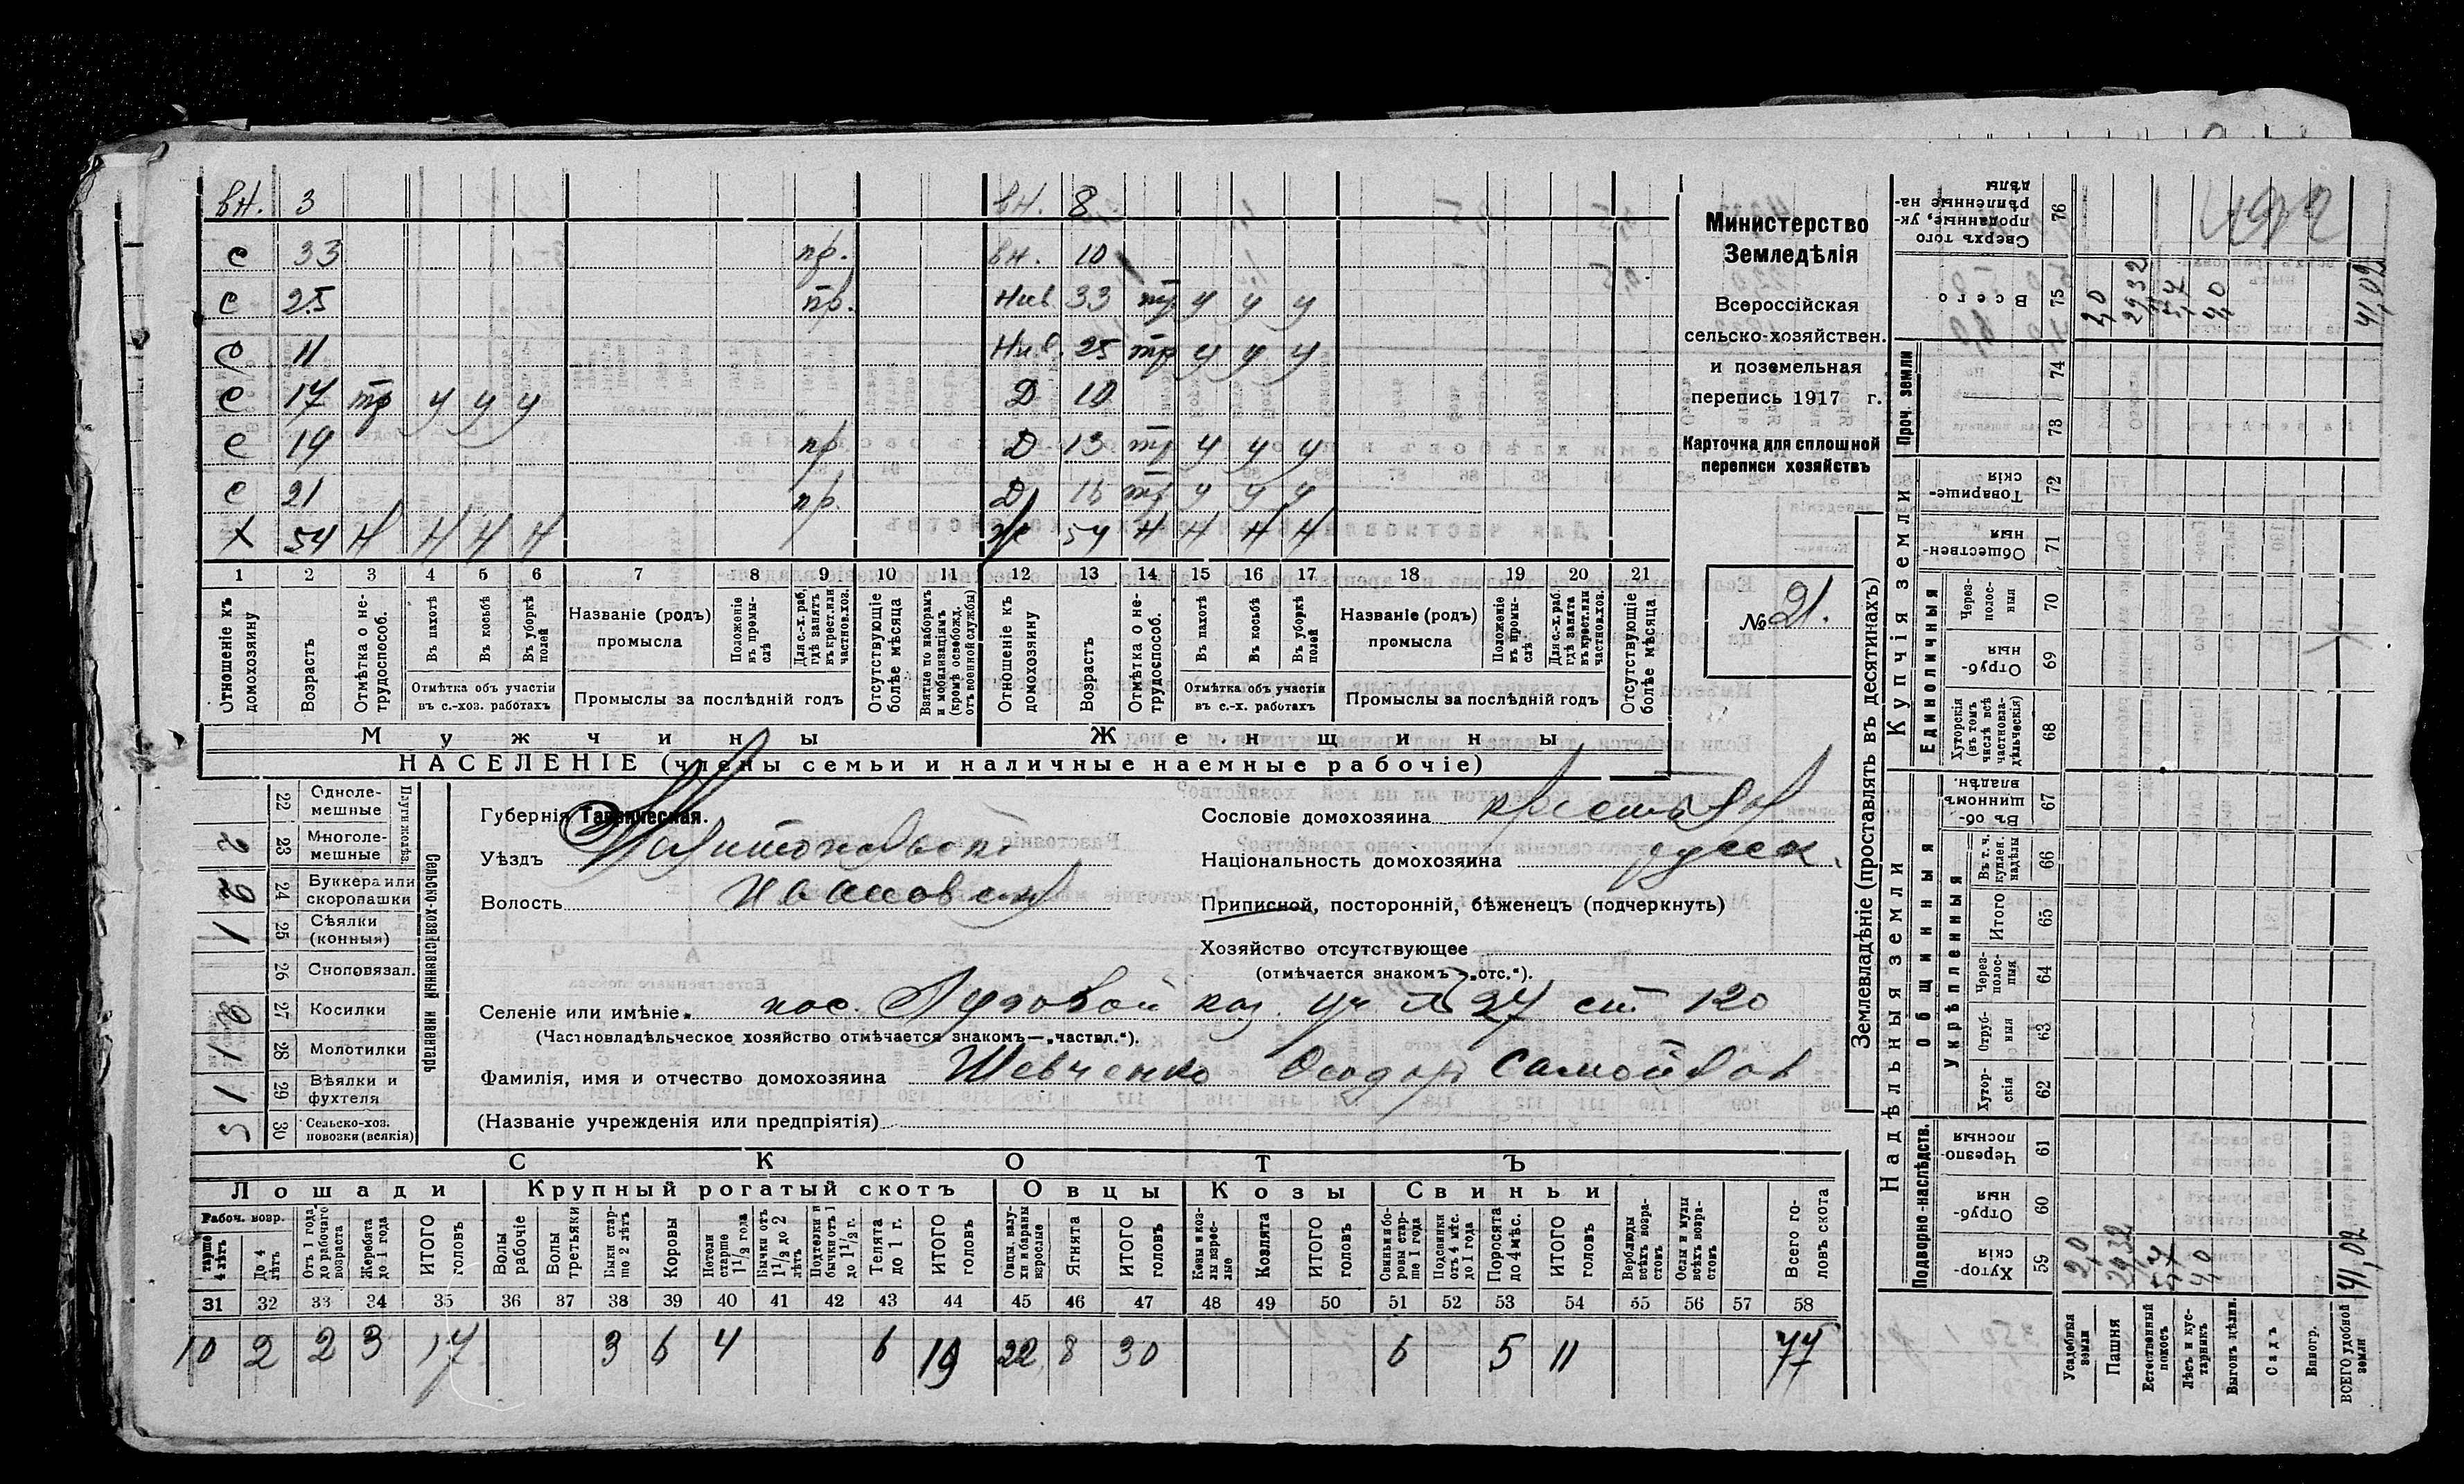 вн. 3 вн. 8
С 33 пр. вн. 10
С 25 пр. Нив 33 тр у у у
С 11 Нив. 25 тр у у у
С 17 тр у у у Д 10
С 19 пр Д 13 тр у у у
С 21 пр. Д 15 тр у у у
Х 54 Н Н Н Н ж 54 Н Н Н Н
1 2 3 4 5 6 7 8 9 10 11 12 13 14 15 16 17 18 19 20 21
Отношеніе къ домохозяину
Возрастъ
Отмѣтка о не-трудоспособ.
Въ пахотѣ
Въ косьбѣ
Въ уборкѣ полей
Отмѣтка объ участіи
въ с.-хоз. работахъ
Названіе (родъ)
промысла
Положеніе въ промы-слѣ
Для с.-х. раб. гдѣ занятъ въ крест. или частновл. хоз.
Промыслы за послѣдній годъ
Отсутствующіе болѣе мѣсяца
Взятые по наборамъ и мобилизаціямъ (кромѣ освобожд. отъ военной службы)
Отношеніе къ домохозяину
Возрастъ
Отмѣтка о не-трудоспособ.
Въ пахотѣ
Въ косьбѣ
Въ уборкѣ полей
Отмѣтка объ участіи
въ с.-х. работахъ
Названіе (родъ)
промысла
Положеніе въ промы-слѣ
Для с.-х. раб. гдѣ занята въ крест. или частнов. хоз.
Промыслы за послѣдній годъ
Отсутствующіе болѣе мѣсяца
Мужчины Женщины
НАСЕЛЕНІЕ (члены семьи и наличные наемные рабочіе)
Министерство
Земледѣлія
Всероссійская
сельско-хозяйствен.
и поземельная
перепись 1917 г.
Карточка для сплошной
переписи хозяйствъ
№ 21.
Сельско-хозяйственный инвентарь
Плуги желѣз.
22 Одноле-мешные
2 23 Многоле-мешные
2 24 Буккера или скоропашки
1 25 Сѣялки (конныя)
26 Сноповязал.
2 27 Косилки
1 28 Молотилки
1 29 Вѣялки и фухтеля
5 30 Сельско-хоз. повозки (всякія)
Губернія Таврическая.
Уѣздъ Мелитопольскій
Волость
Сословіе домохозяина крестьян
Національность домохозяина русск.
Приписной, посторонній, бѣженецъ (подчеркнуть)
Хозяйство отсутствующее
(отмѣчается знакомъ „отс.“).
Селеніе или имѣніе. пос. Луговой каз. уч № 27 ст 120
(Частновладѣльческое хозяйство отмѣчается знакомъ—„частвл.“).
Фамилія, имя и отчество домохозяина Шевченко Феодоръ Самойлов
(Названіе учрежденія или предпріятія)
СКОТЪ
Лошади Крупный рогатый скотъ Овцы Козы Свиньи
Рабоч. возр.
тарше 4 лѣтъ
До 4 лѣтъ
Отъ 1 года до рабочаго возраста
Жеребята до 1 года
ИТОГО головъ
Волы рабочіе
Волы третьяки
Быки стар-ше 2 лѣтъ
Коровы
Нетели старше 1 1/2 года
Бычки отъ 1 1/2 до 2 лѣтъ
Подтелки и бычки отъ 1 до 1 1/2 г.
Телята до 1 г.
ИТОГО головъ
Овцы, валу-хи и бараны взрослые
Ягнята
ИТОГО головъ
Козы и коз-лы взрос-лые
Козлята
ИТОГО головъ
Свиньи и бо-ровы стар-ше 1 года
Подсвинки отъ 4 мѣс. до 1 года
Поросята до 4 мѣс.
ИТОГО головъ
Верблюды всѣхъ возра-стовъ
Ослы и мулы всѣхъ возра-стовъ
Всего го-ловъ скота
31 32 33 34 35 36 37 38 39 40 41 42 43 44 45 46 47 48 49 50 51 52 53 54 55 56 57 58
10 2 2 3 17 3 6 4 6 19 22 8 30 6 5 11 77
Землевладѣніе (проставлять въ десятинахъ)
Надѣльныя земли
Купчія земли
Проч. земли
Общинныя
Укрѣпленныя
Единоличныя
Подворно-наслѣдств.
76 Сверхъ того проданные, ук-рѣпленные на-дѣлы
75 Всего 2,0 29,32 5,7 4,0 41,02
74
73
72 Товарище-скія
71 Обществен-ныя
70 Через-полос-ныя
69 Отруб-ныя
68 Хуторскія (въ томъ числѣ всѣ частновла-дѣльческія)
67 Въ об-щинномъ владѣн.
66 Въ т. ч. куплен. надѣлы
65 Итого
64 Через-полос-ныя
63 Отруб-ныя
62 Хутор-скія
61 Черезпо-лосныя
60 Отруб-ныя
59 Хутор-скія 2,0 29,32 5,7 4,0 41,02
Усадебныя земли
Пашня
Естественный покосъ
Лѣсъ и кус-тарникъ
Выгонъ цѣлин.
Садъ
Виногр.
ВСЕГО удобной земли